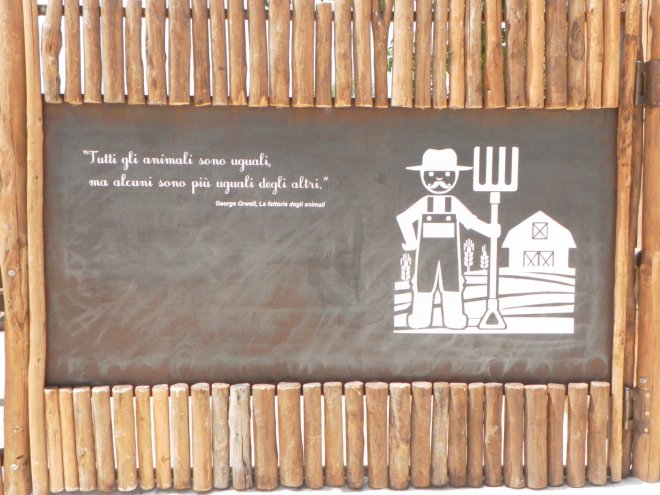 "Tutti gli animali sono uguali,
ma alcuni sono più uguali degli altri."
George Orwell, La fattoria degli animali